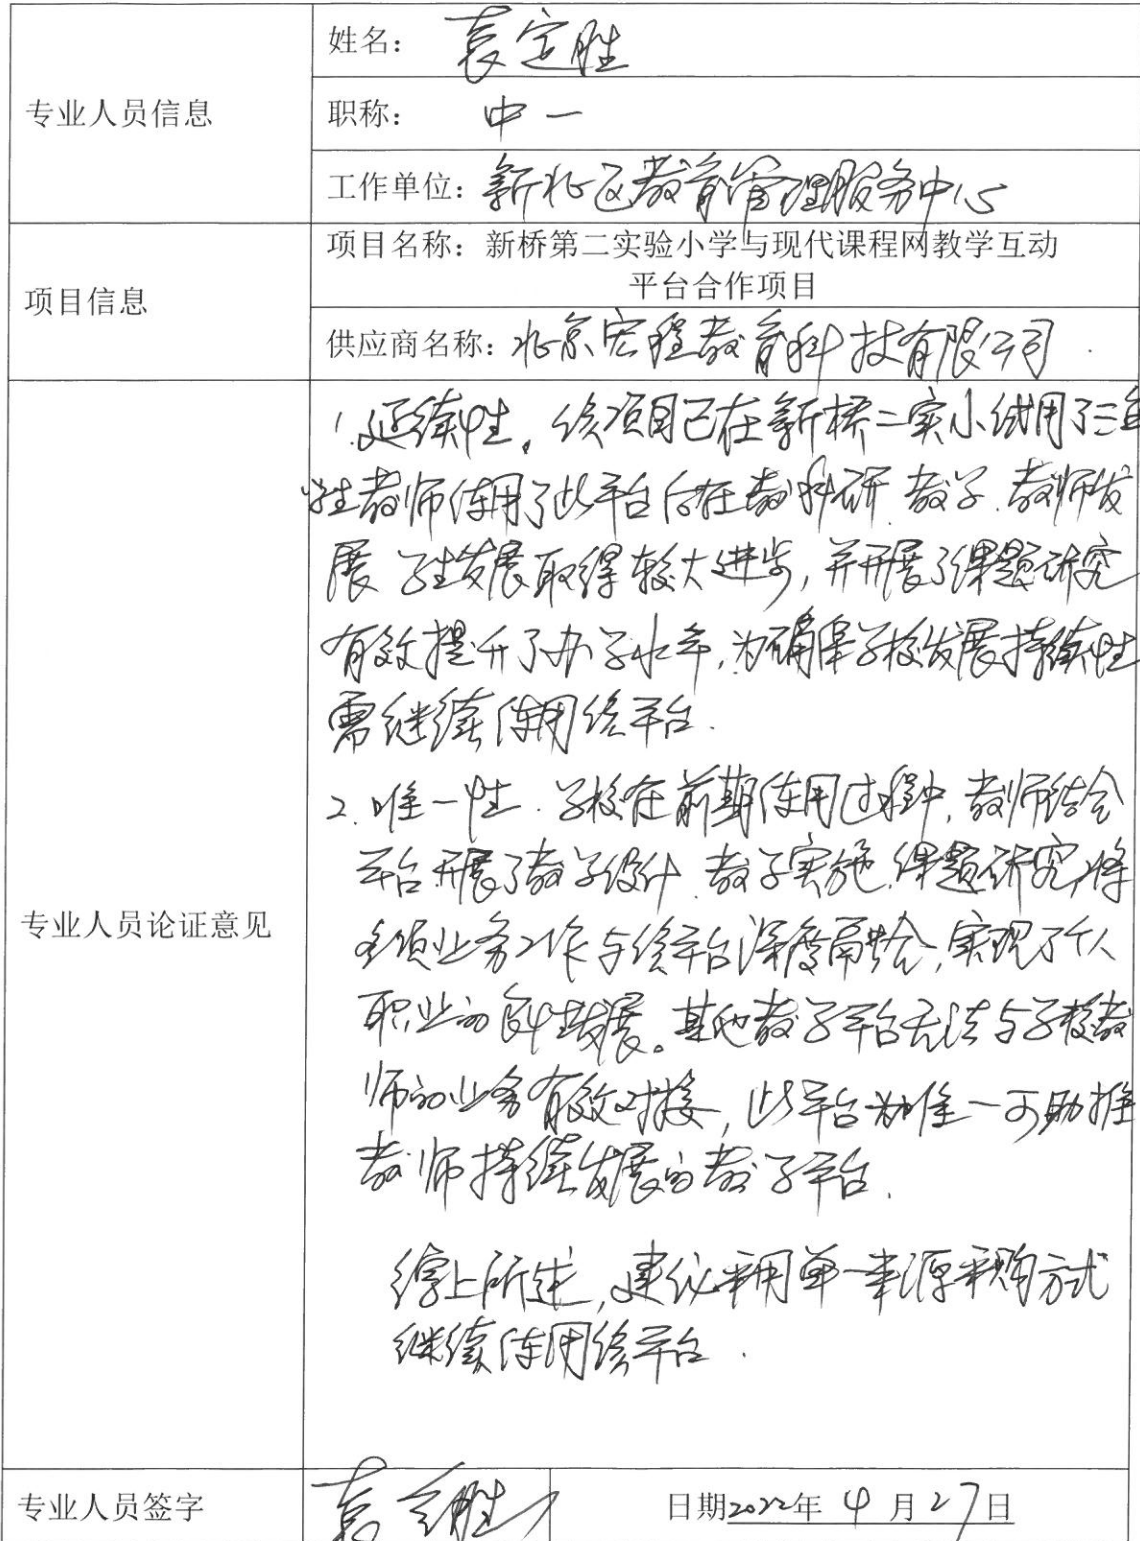 姓名：袁定胜
专业人员信息
职称：中一
工作单位：新北区教育管理服务中心
项目名称：新桥第二实验小学与现代课程网教学互动
平台合作项目
项目信息
供应商名称：北京宏程教育科技有限公司.
1.延续性。该项目已在新桥二实小试用了三年
教师使用了此平台后在教科研.教学.教师发
展 学生发展取得较大进步,并开展了课题研究
有效提升了办学水平,为确保学校发展持续性
需继续使用该平台.
2.唯一性.学校在前期使用过程中,教师结合
平台开展了教学设计.教学实施.课题研究,将
各项业务工作与该平台深度融合,实现了个人
职业的良性发展。其他教学平台无法与学校教
师的业务有效对接,此平台为唯一可助推
教师持续发展的教学平台.
专业人员论证意见
综上所述,建议采用单一来源采购方式
继续使用该平台.
专业人员签字 袁定胜 日期2022年4月27日